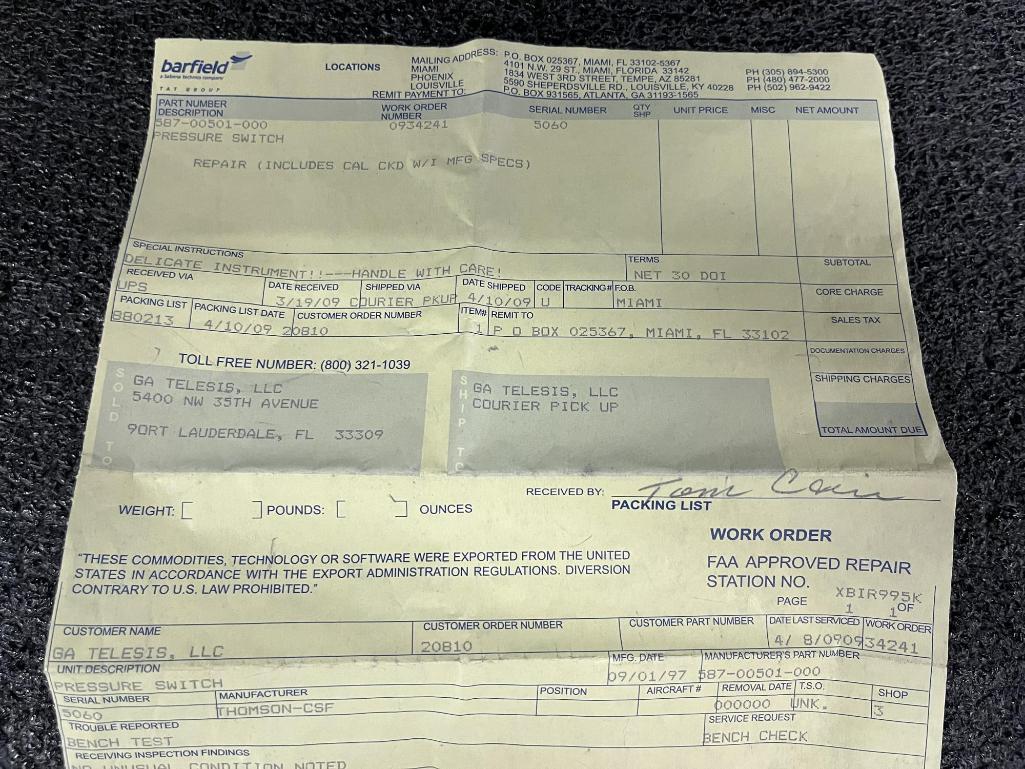 barfield
a Sabena technics company
TAT GROUP
LOCATIONS
MAILING ADDRESS: P.O. BOX 025367, MIAMI, FL 33102-5367
MIAMI 4101 N.W. 29 ST., MIAMI, FLORIDA 33142 PH (305) 894-5300
PHOENIX 1834 WEST 3RD STREET, TEMPE, AZ 85281 PH (480) 477-2000
LOUISVILLE 5590 SHEPERDSVILLE RD., LOUISVILLE, KY 40228 PH (502) 962-9422
REMIT PAYMENT TO: P.O. BOX 931565, ATLANTA, GA 31193-1565
PART NUMBER DESCRIPTION WORK ORDER NUMBER SERIAL NUMBER QTY SHP UNIT PRICE MISC NET AMOUNT
587-00501-000 0934241 5060
PRESSURE SWITCH
REPAIR (INCLUDES CAL CKD W/I MFG SPECS)
SPECIAL INSTRUCTIONS TERMS SUBTOTAL
DELICATE INSTRUMENT!!---HANDLE WITH CARE! NET 30 DOI
RECEIVED VIA DATE RECEIVED SHIPPED VIA DATE SHIPPED CODE TRACKING# F.O.B. CORE CHARGE
UPS 3/19/09 COURIER PKUP 4/10/09 U MIAMI
PACKING LIST PACKING LIST DATE CUSTOMER ORDER NUMBER ITEM# REMIT TO SALES TAX
880213 4/10/09 20810 1 P O BOX 025367, MIAMI, FL 33102
DOCUMENTATION CHARGES
TOLL FREE NUMBER: (800) 321-1039
SHIPPING CHARGES
SOLD TO
GA TELESIS, LLC
5400 NW 35TH AVENUE
9ORT LAUDERDALE, FL 33309
SHIP TO
GA TELESIS, LLC
COURIER PICK UP
TOTAL AMOUNT DUE
RECEIVED BY: Tom
PACKING LIST
WEIGHT: [ ] POUNDS: [ ] OUNCES
WORK ORDER
"THESE COMMODITIES, TECHNOLOGY OR SOFTWARE WERE EXPORTED FROM THE UNITED
STATES IN ACCORDANCE WITH THE EXPORT ADMINISTRATION REGULATIONS. DIVERSION
CONTRARY TO U.S. LAW PROHIBITED."
FAA APPROVED REPAIR
STATION NO. XBIR995K
PAGE 1 OF 1
CUSTOMER NAME CUSTOMER ORDER NUMBER CUSTOMER PART NUMBER DATE LAST SERVICED WORK ORDER
GA TELESIS, LLC 20810 4/ 8/09 0934241
UNIT DESCRIPTION MFG. DATE MANUFACTURER'S PART NUMBER
PRESSURE SWITCH 09/01/97 587-00501-000
SERIAL NUMBER MANUFACTURER POSITION AIRCRAFT # REMOVAL DATE T.S.O. SHOP
5060 THOMSON-CSF 000000 UNK. 3
TROUBLE REPORTED SERVICE REQUEST
BENCH TEST BENCH CHECK
RECEIVING INSPECTION FINDINGS
NO UNUSUAL CONDITION NOTED